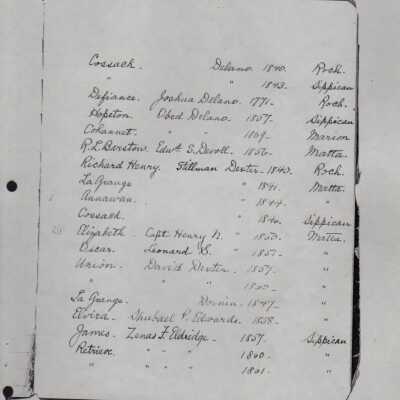 Cossack. Delano. 1840. Roch.
" " 1843. Sippican
Defiance. Joshua Delano. 1771. Roch.
Hopeton. Obed Delano. 1857. Sippican
Cohannet. " " 1869. Marion
R. L. Barstow. Edw. S. Devoll. 1856. Matta.
Richard Henry. Stillman Dexter. 1840. Roch.
La Grange " 1841. Matta.
Annawan. " 1844. "
Cossack. " 1846. Sippican
Elizabeth. Capt. Henry " 1853. Matta.
Oscar. Leonard S. " 185 "
Union. David Dexter. 1857. "
" " "
La Grange. 1847. "
Elvira. Shubael Edwards. 1858. "
James. Zenas F. Eldridge. 1857. Sippican
Retrieve. " " 1860. "
" " " 1861. "